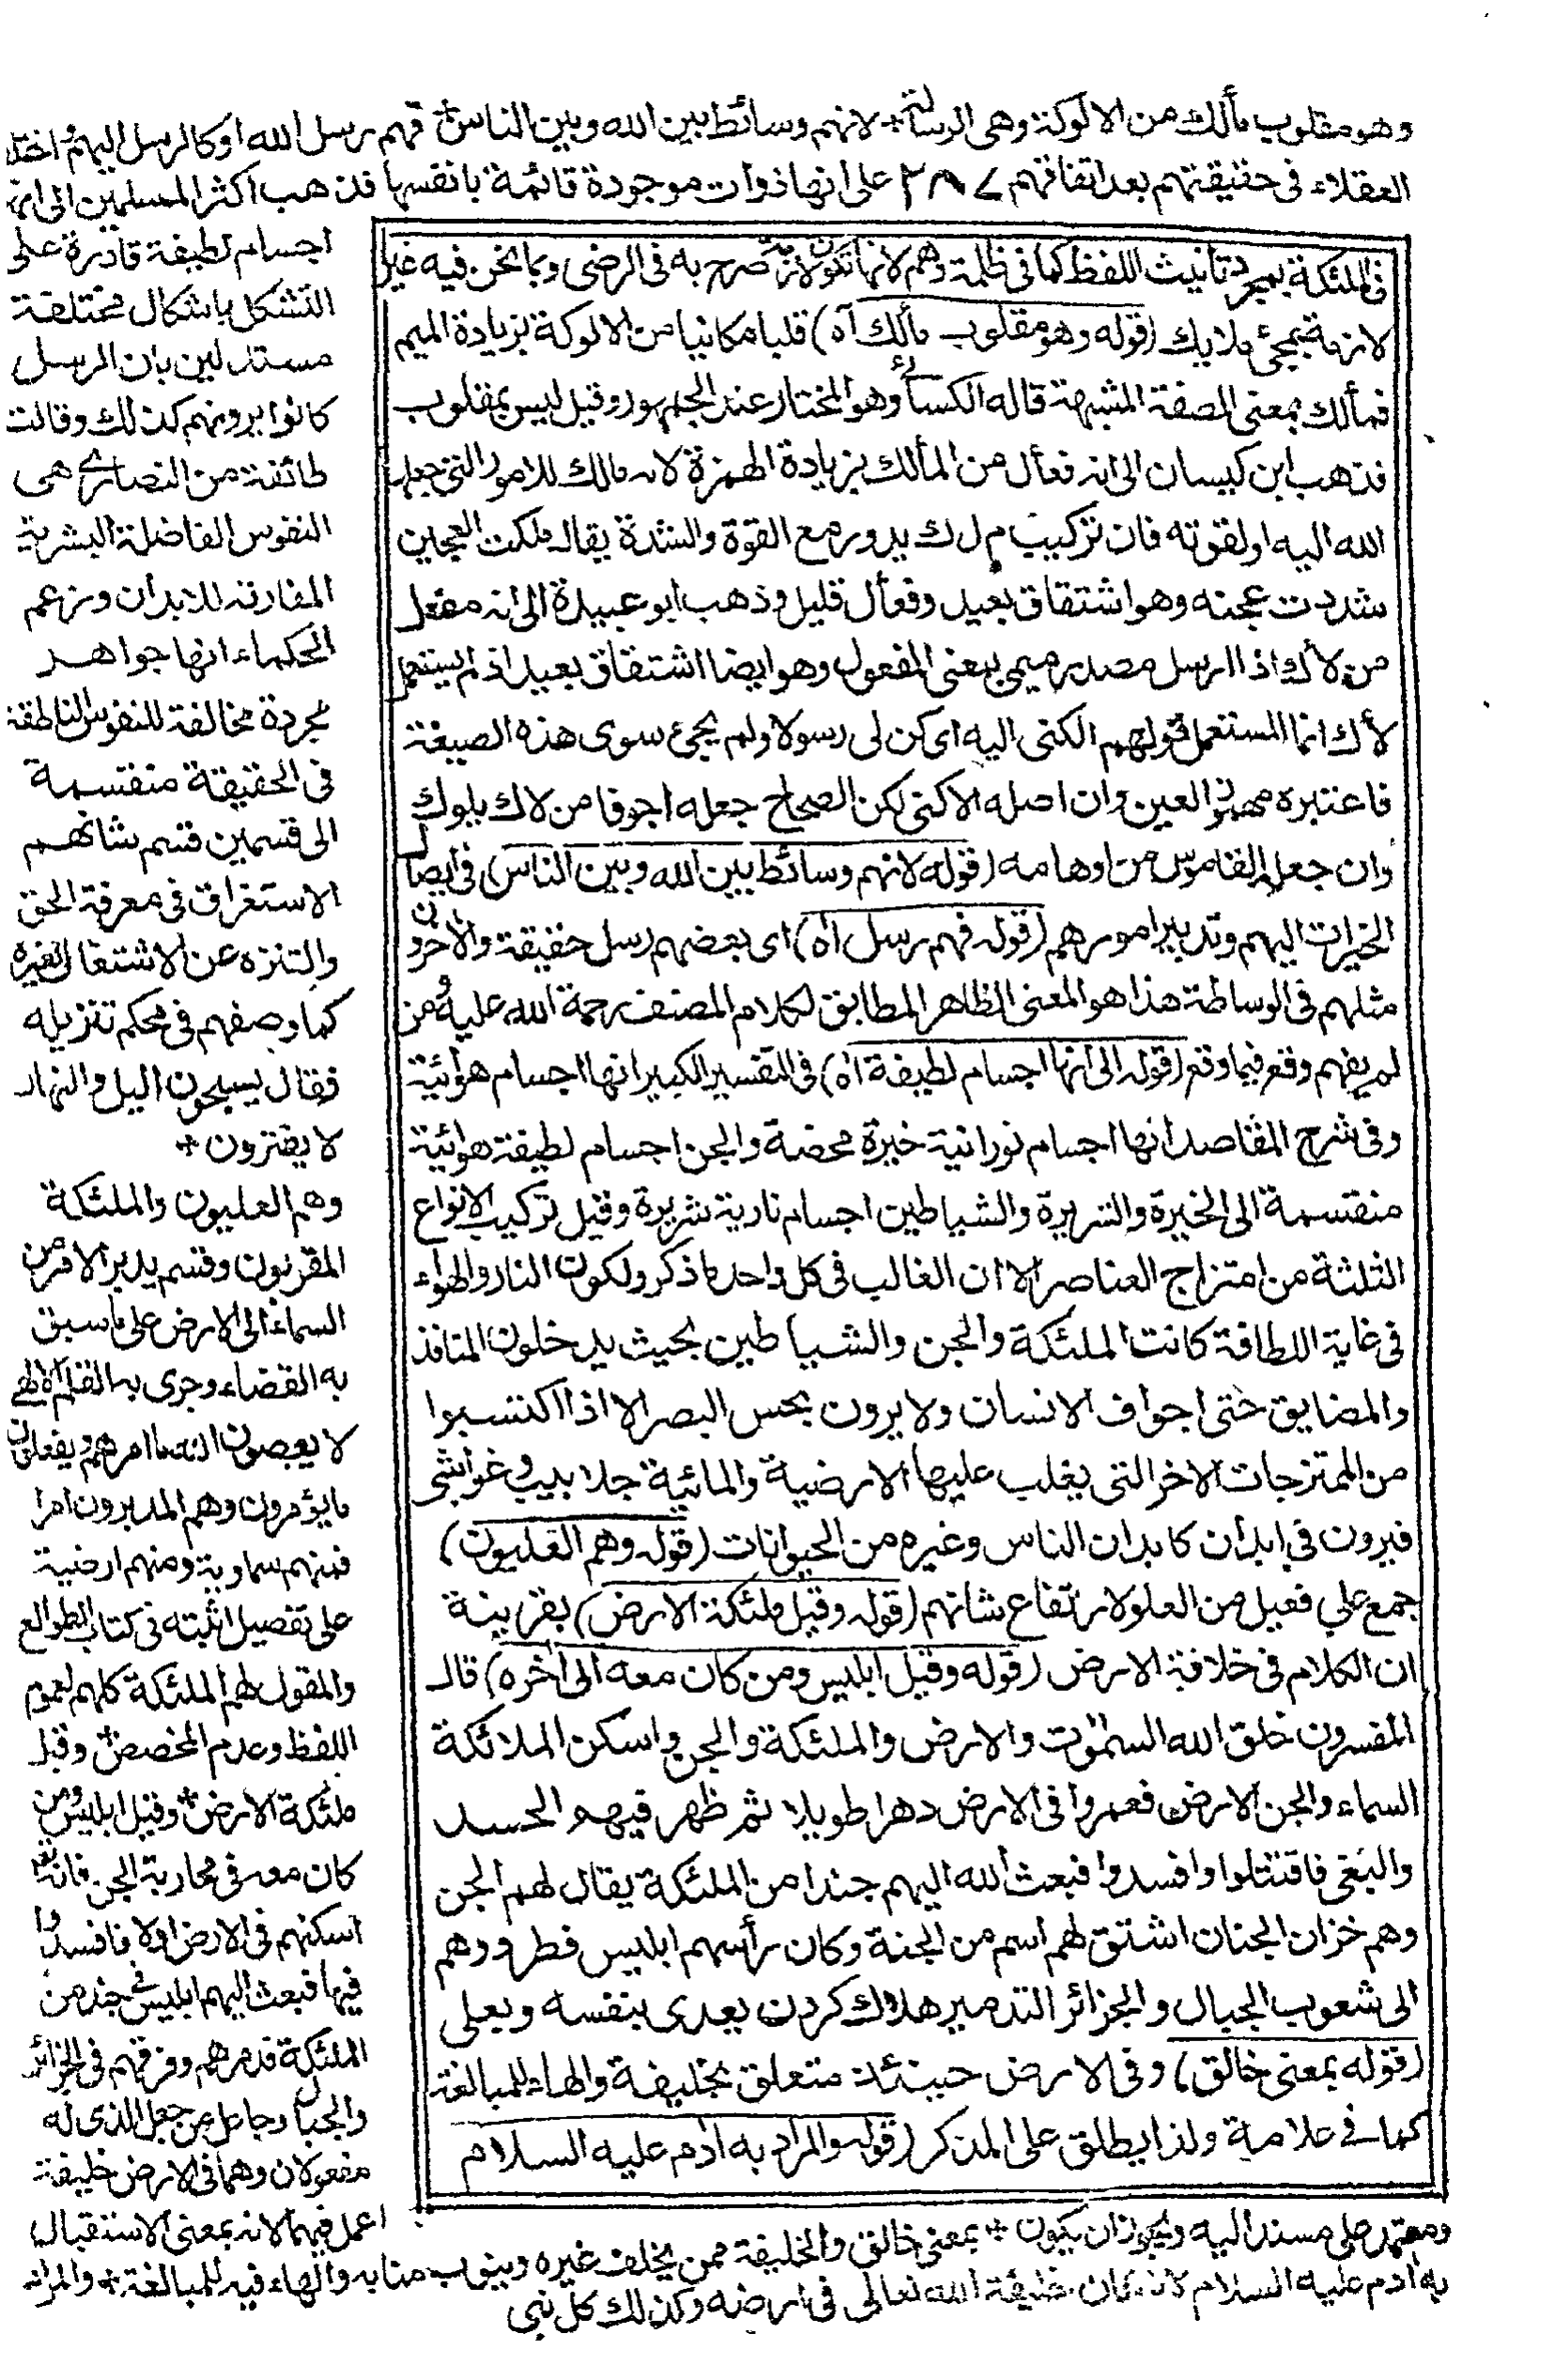 وهو مقلوب مألك من الالوكة وهى الرسالة * لانهم وسائط بين الله وبين الناس * فهم رسل الله او كالرسل اليهم * اختلف
العقلاء فى حقيقتهم بعد اتفاقهم ٢٨٧ على انها ذوات موجودة قائمة بانفسها فذهب اكثر المسلمين الى انها
اجسام لطيفة قادرة على
التشكل باشكال مختلفة
مستدلين بان الرسل
كانوا يرونهم كذلك وقالت
طائفة من النصارى هى
النفوس الفاضلة البشرية
المفارقة للابدان وزعم
الحكماء انها جواهر
مجردة مخالفة للنفوس الناطقة
فى الحقيقة منقسمة
الى قسمين قسم شانهم
الاستغراق فى معرفة الحق
والتنزه عن الاشتغال بغيره
كما وصفهم فى محكم تنزيله
فقال يسبحون اليل والنهار
لا يفترون *
وهم العليون والملئكة
المقربون وقسم يدبر الامر من
السماء الى الارض على ما سبق
به القضاء وجرى به القلم الالهى
لا يعصون الله ما امرهم ويفعلون
ما يؤمرون وهم المدبرون امرا
فمنهم سماوية ومنهم ارضية
على تفصيل اثبته فى كتاب الطوالع
والمقول لهم الملئكة كلهم لعموم
اللفظ وعدم المخصص * وقيل
ملئكة الارض * وقيل ابليس ومن
كان معه فى محاربة الجن فانه تعم
اسكنهم فى الارض اولا فافسدوا
فيها فبعث اليهم ابليس فى جند من
الملئكة فدمرهم وفرقهم فى الجزائر
والجبال وجاعل من جعل الذى له
مفعولان وهما فى الارض خليفة
اعمل فيهما لانه بمعنى الاستقبال
ومعتمد على مسند اليه ويجوز ان يكون * بمعنى خالق والخليفة ممن يخلف غيره وينوب منابه والهاء فيه للمبالغة * والمراد
به ادم عليه السلام لانه كان خليفة الله تعالى فى ارضه وكذلك كل نبى
فى الملئكة بمجرد تانيث اللفظ كما فى ظلمة وهم لانها تكون لازمة صرح به فى الرضى وبما نحن فيه غير
لازمة بمجئ ملايك (قوله وهو مقلوب مألك آه) قلبا مكانيا من الالوكة بزيادة الميم
فمألك بمعنى الصفة المشبهة قاله الكسائى وهو المختار عند الجمهور وقيل ليس بمقلوب
فذهب ابن كيسان الى انه فعأل من المألك بزيادة الهمزة لانه مالك للامور التى جعلها
الله اليه او لقوته فان تركيب م ل ك يدور مع القوة والشدة يقال ملكت العجين
شددت عجنه وهو اشتقاق بعيد وفعأل قليل وذهب ابو عبيدة الى انه مفعل
من لأك اذا ارسل مصدر ميمى بمعنى المفعول وهو ايضا اشتقاق بعيد اذ لم يستعمل
لأك انما المستعمل قولهم الكنى اليه اى كن لى رسولا ولم يجئ سوى هذه الصيغة
فاعتبره مهموز العين وان اصله الاكنى لكن الصحاح جعله اجوفا من لاك يلوك
وان جعل القاموس من اوهامه (قوله لانهم وسائط بين الله وبين الناس) فى ايصال
الخيرات اليهم وتدبير امورهم (قوله فهم رسل اه) اى بعضهم رسل حقيقة والآخرون
مثلهم فى الوساطة هذا هو المعنى الظاهر المطابق لكلام المصنف رحمة الله عليه ومن
لم يفهم وقع فيما وقع (قوله الى انها اجسام لطيفة اه) فى التفسير الكبير انها اجسام هوائية
وفى شرح المقاصد انها اجسام نورانية خيرة محضة والجن اجسام لطيفة هوائية
منقسمة الى الخيرة والشريرة والشياطين اجسام نارية شريرة وقيل تركيب الانواع
الثلثة من امتزاج العناصر الا ان الغالب فى كل واحد ما ذكر ولكون النار والهواء
فى غاية اللطافة كانت الملئكة والجن والشياطين بحيث يدخلون المنافذ
والمضايق حتى اجواف الانسان ولا يرون بحس البصر الا اذا اكتسبوا
من الممتزجات الاخر التى يغلب عليها الارضية والمائية جلابيب وغواشى
فيرون فى ابدان كابدان الناس وغيره من الحيوانات (قوله وهم العليون)
جمع على فعيل من العلو لارتفاع شانهم (قوله وقيل ملئكة الارض) بقرينة
ان الكلام فى خلافة الارض (قوله وقيل ابليس ومن كان معه الى اخره) قال
المفسرون خلق الله السموت والارض والملئكة والجن واسكن الملائكة
السماء والجن الارض فعمروا فى الارض دهرا طويلا ثم ظهر فيهم الحسد
والبغى فاقتتلوا وافسدوا فبعث الله اليهم جندا من الملئكة يقال لهم الجن
وهم خزان الجنان اشتق لهم اسم من الجنة وكان رأسهم ابليس فطردوهم
الى شعوب الجبال والجزائر التدمير هلاك كردن يعدى بنفسه وبعلى
(قوله بمعنى خالق) وفى الارض حينئذ متعلق بخليفة والهاء للمبالغة
كما فى علامة ولذا يطلق على المذكر (قوله والمراد به ادم عليه السلام